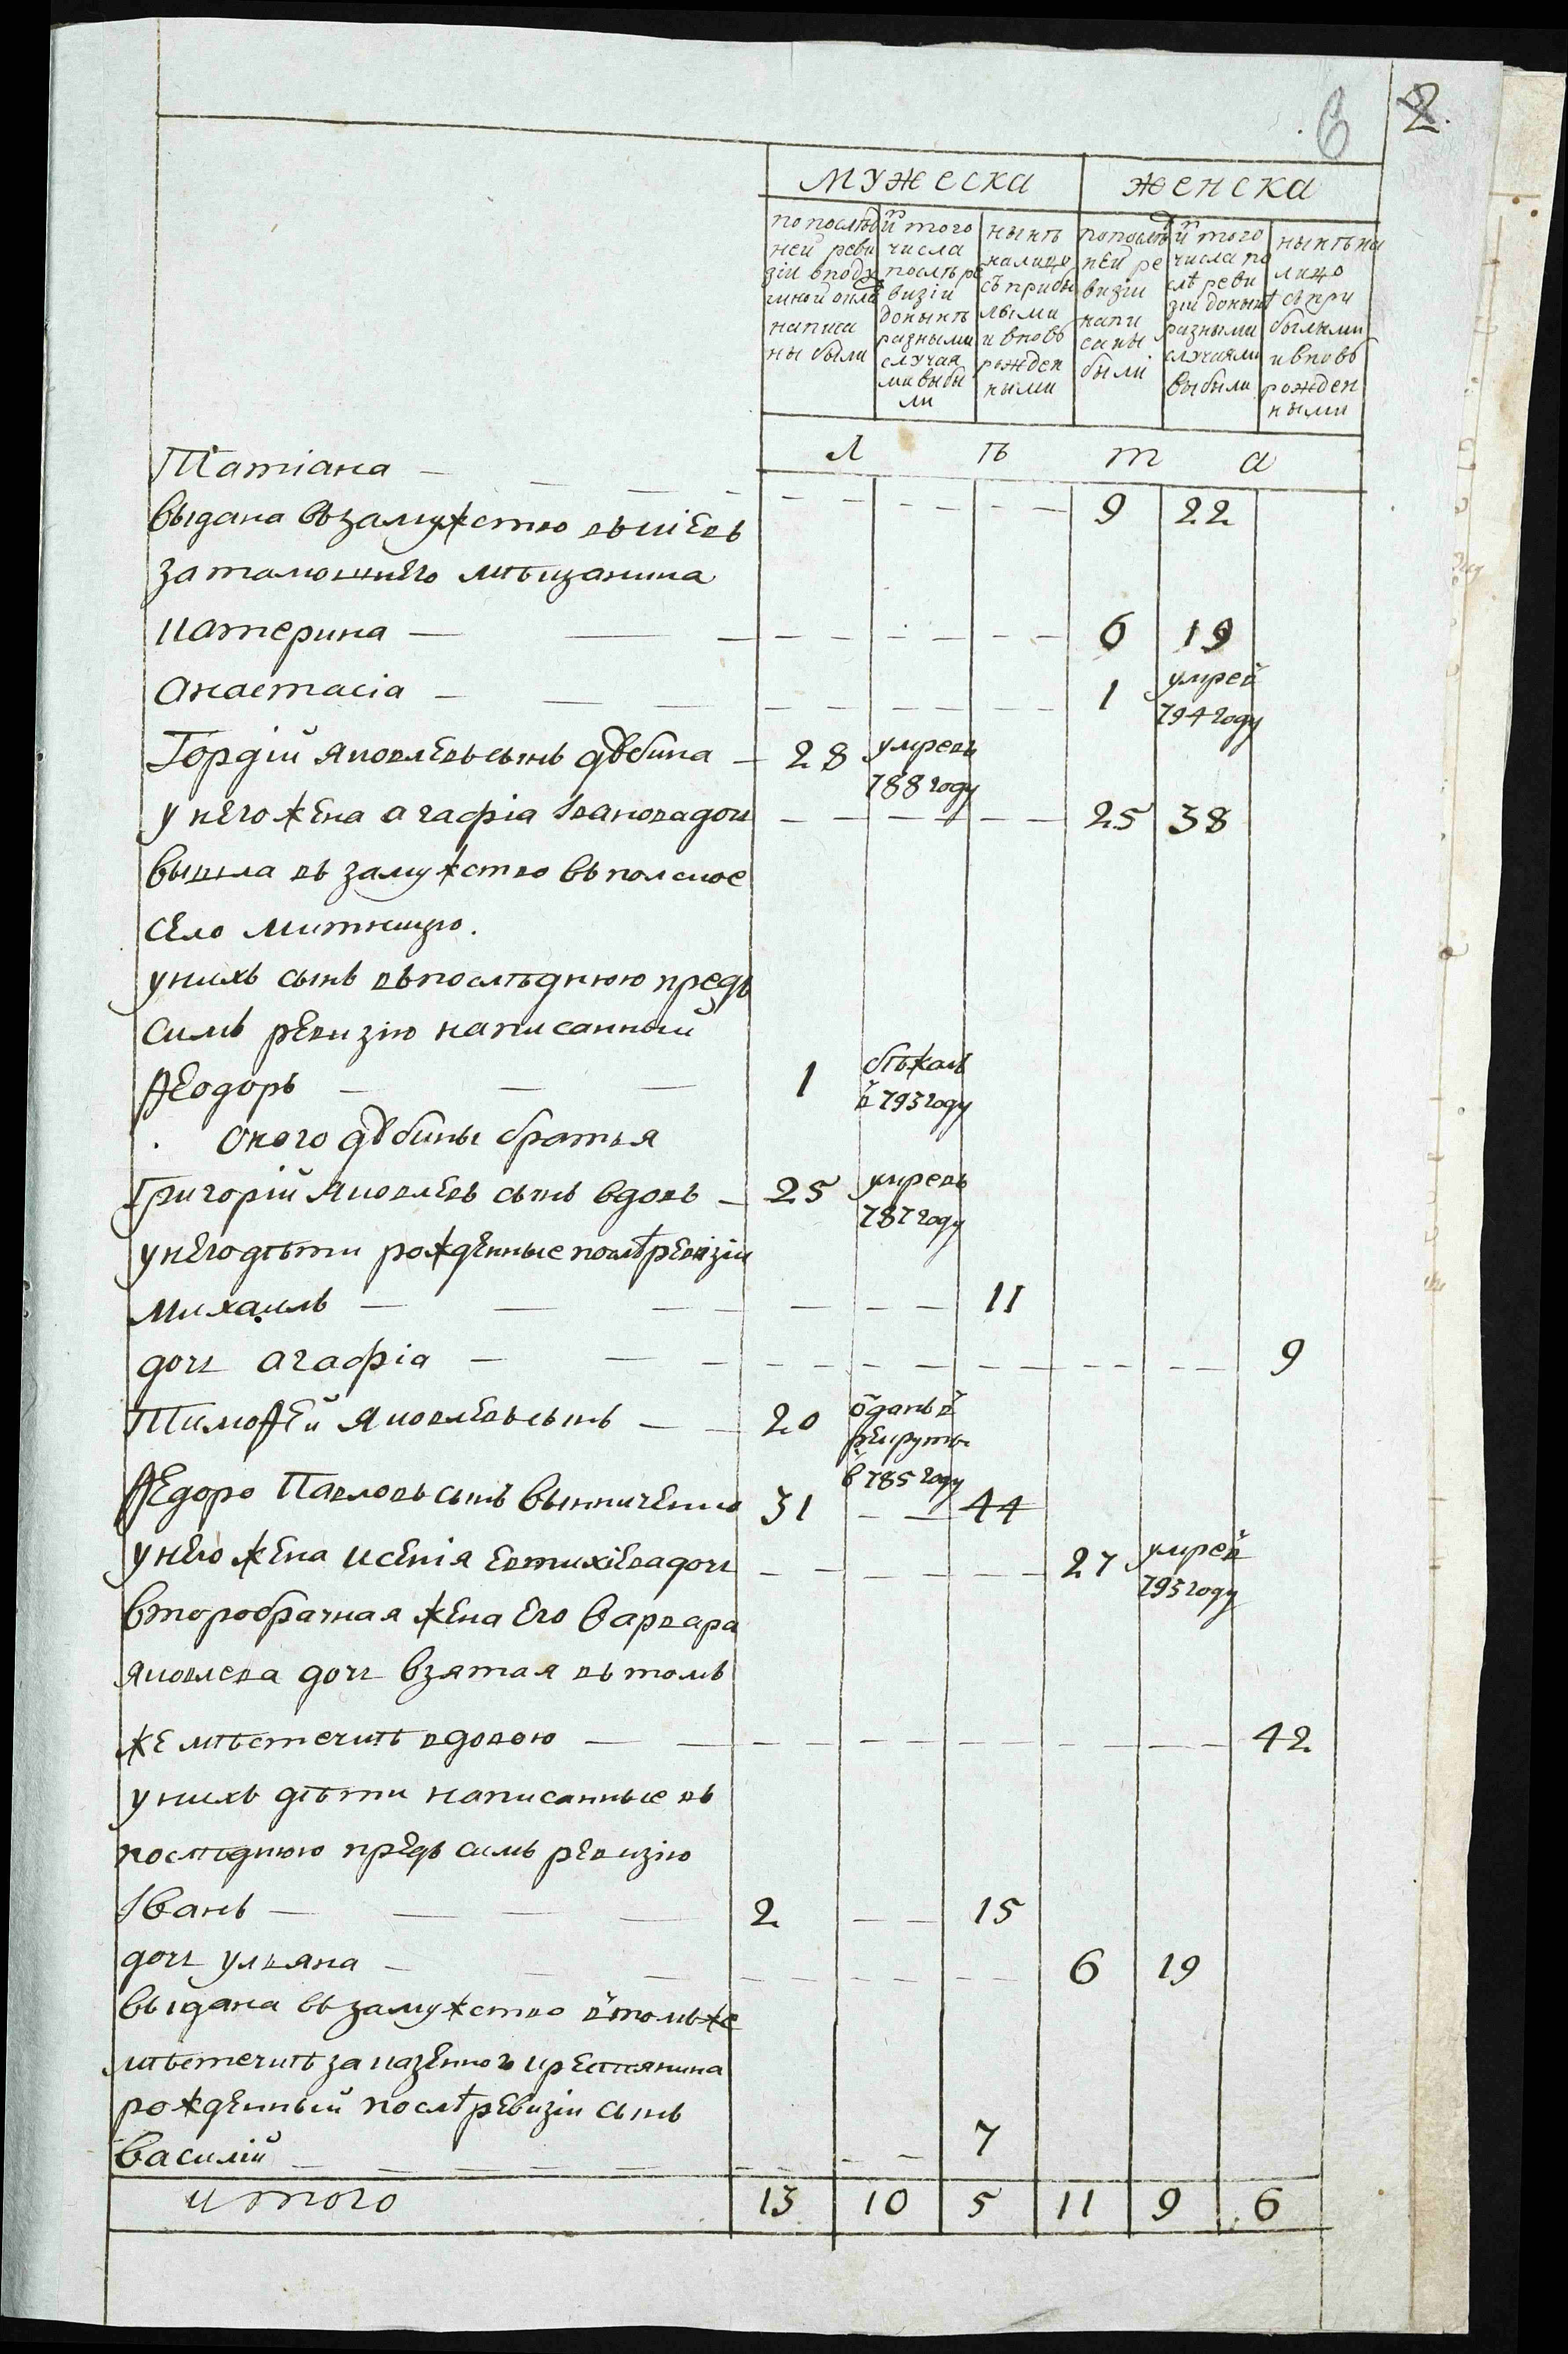 6 2.
мужеска женска
по послѣд
ней реви
зіи в подꙋ
шной окла
написа
ны были
ис того
числа
послѣ ре
визіи
донынѣ
разными
случая
ми выбы
ли
нынѣ
на лицо
съ прибы
лыми
и вновь
рожден
ными
по послѣд
ней ре
визіи
напи
саны
были
ис того
числа по
слѣ реви
зіи донынѣ
разными
случаями
выбыли
нынѣ на
лицо
съ при
былыми
и вновь
рожден
ными
л ѣ т а
Татіана — 9 22
выдана въ замужство въ кіевъ
за тамошнего мѣщанина
катерина — 6 19
анастасія — 1 умре в
794 году
Гордій яковлевъ сынъ дѣбина — 28 умре въ
788 году
у него жена агафіа Іванова доч 25 38
вышла въ замужство въ полское
село митницю.
у нихъ сынъ въ послѣднюю предъ
симъ ревизію написанный
Ѳеодоръ — 1 бѣжалъ
в 793 году
оного дѣбины братья
Григорій яковлевъ сынъ вдовъ — 25 умре въ
787 году
у него дѣти рожденные послѣ ревизіи
михаилъ — 11
доч агафіа — 9
Тимоѳей яковлевъ сынъ — 20 ѿданъ в
рекруты
в 785 году
Ѳедоръ Павловъ сынъ винниченко 31 — 44
у него жена ксеніа евтихіева доч 27 умре в
793 году
второбрачная жена его варвара
яковлева доч взятая въ томъ
же мѣстечкѣ вдовою — 42
у нихъ дѣти написанные въ
послѣднюю предъ симъ ревизію
Іванъ — 2 — 15
доч уляна — 6 19
выдана въ замужство в томъ же
мѣстечкѣ за казенног крестянина
рожденный послѣ ревизіи сынъ
василій — 7
итого 13 10 5 11 9 6